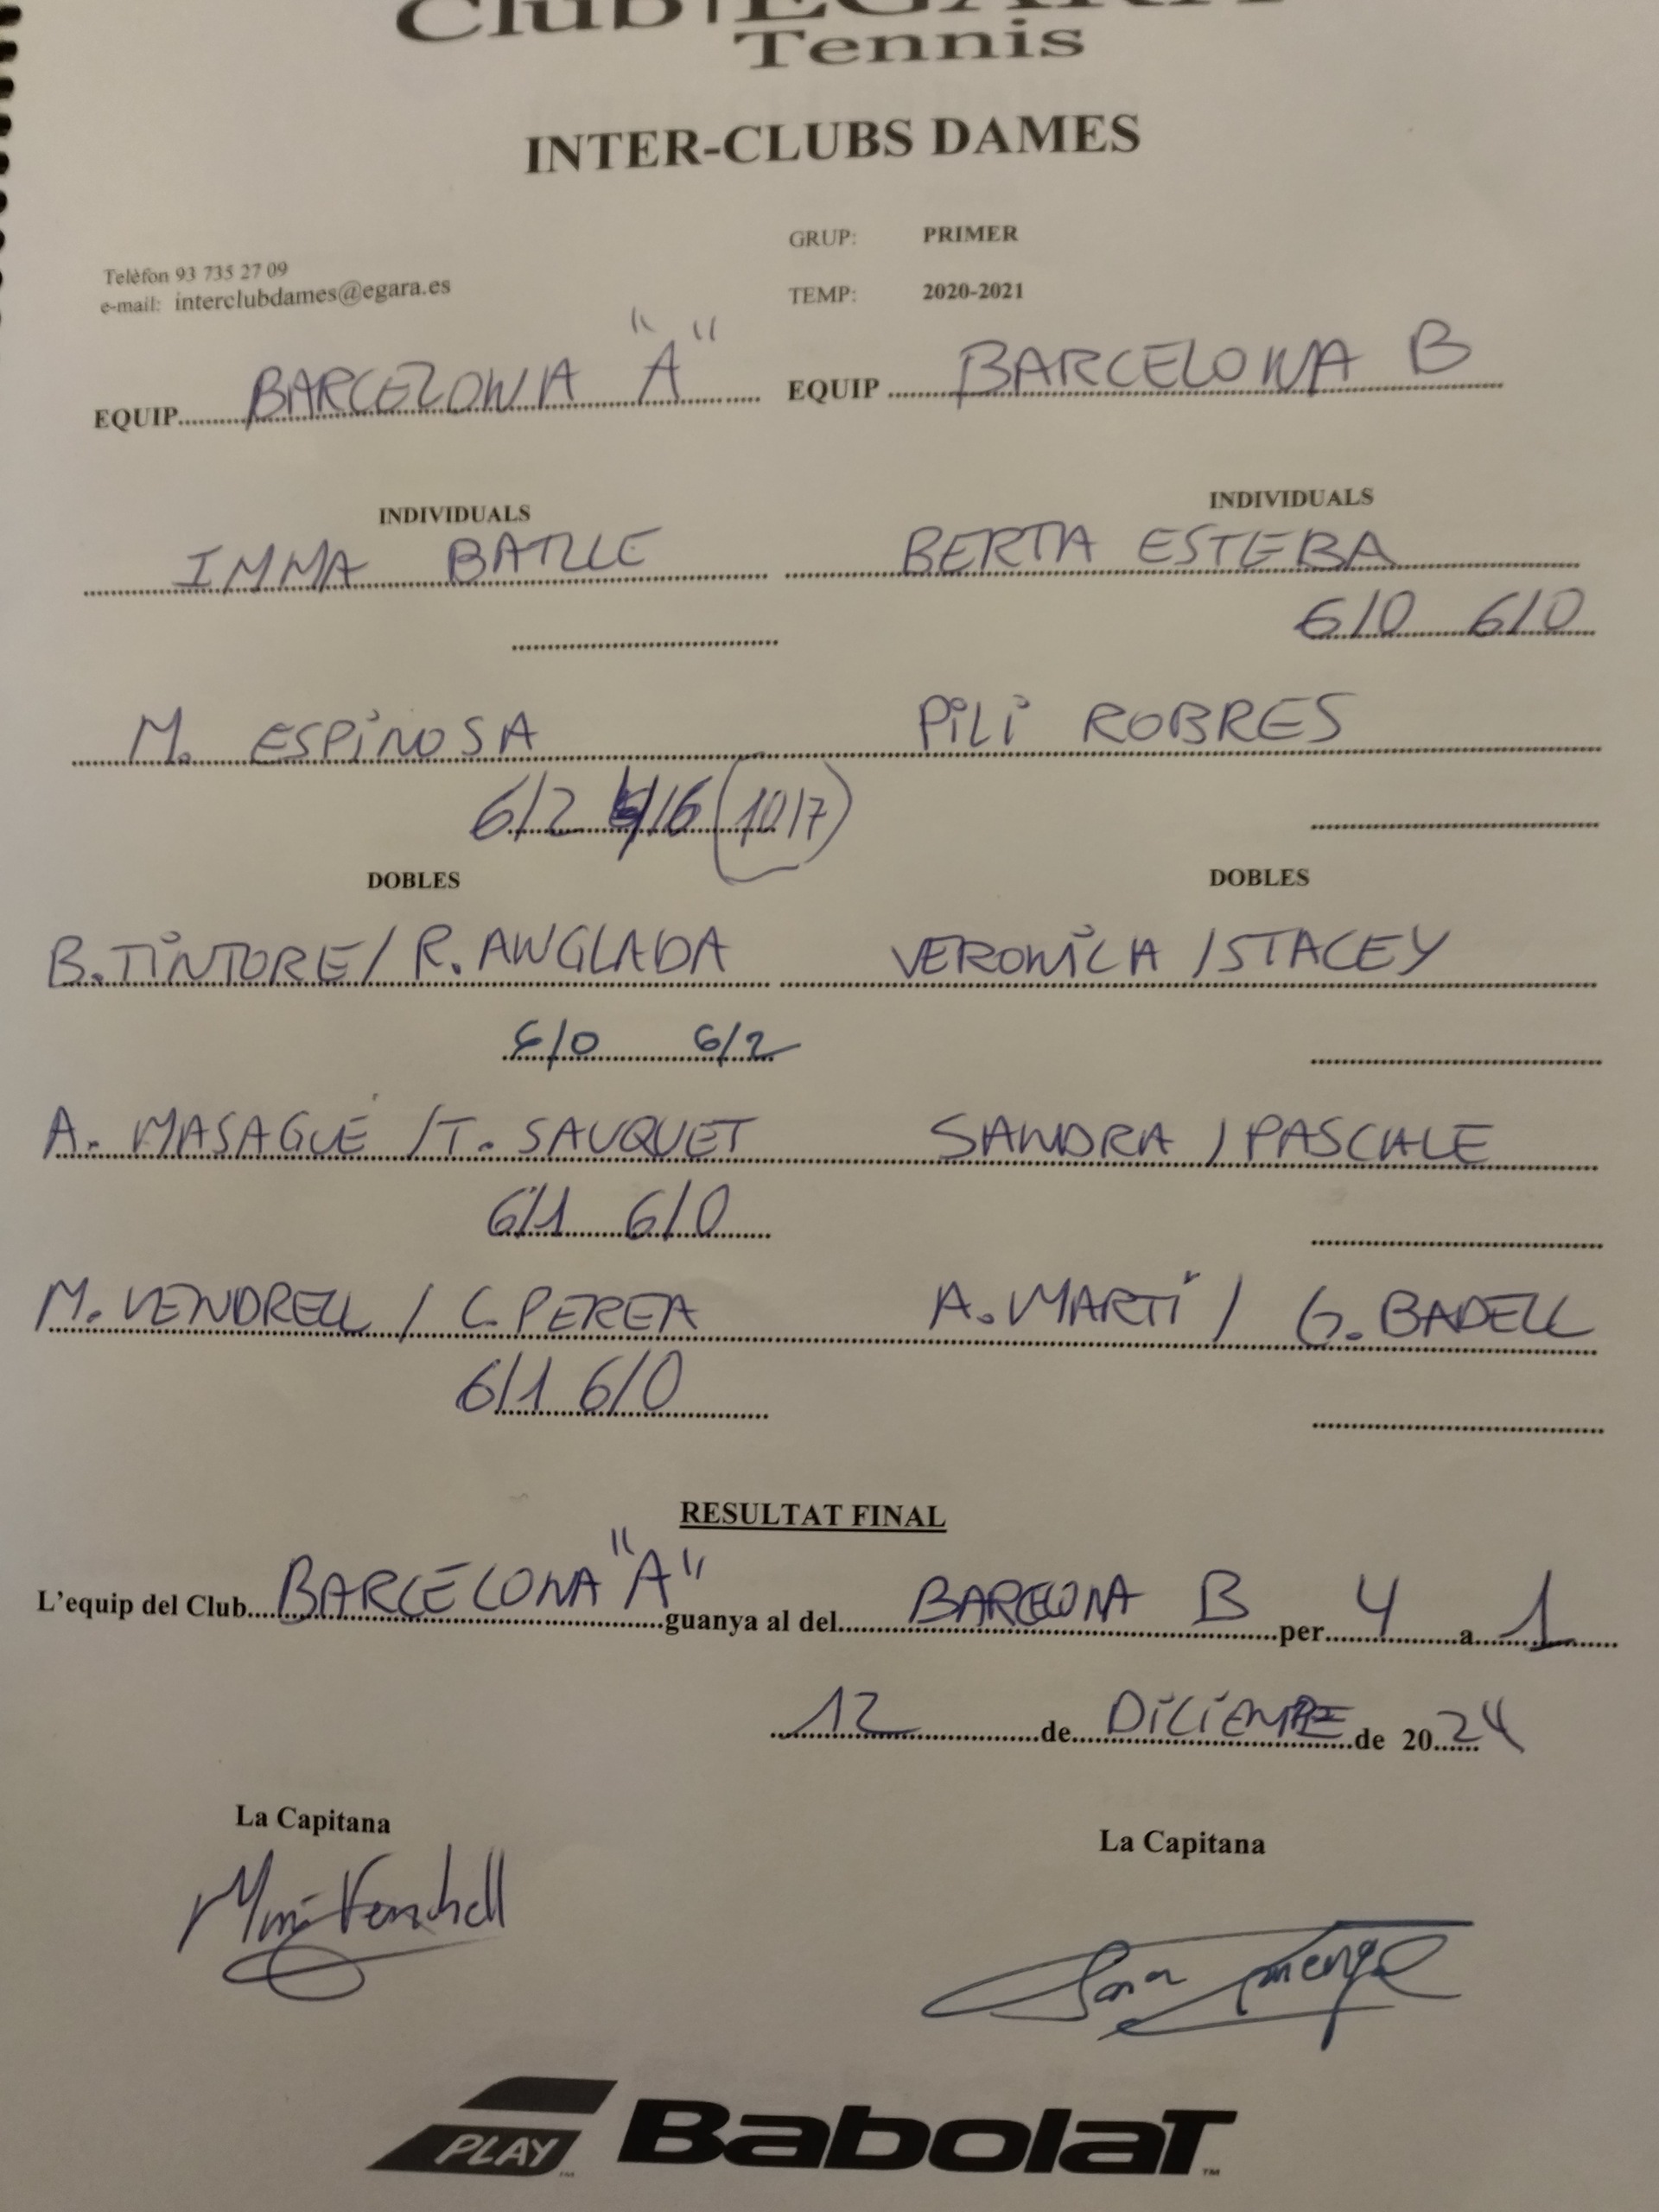 Club EGARA
Tennis
INTER-CLUBS DAMES
GRUP: PRIMER
Telèfon 93 735 27 09
e-mail: interclubdames@egara.es
TEMP: 2020-2021
EQUIP BARCELONA "A" EQUIP BARCELONA B
INDIVIDUALS INDIVIDUALS
IMMA BATLLE BERTA ESTEBA
6/0 6/0
M. ESPINOSA PILI ROBRES
6/2 /6 (10/7)
DOBLES DOBLES
B. TINTORE / R. ANGLADA VERONICA / STACEY
6/0 6/2
A. MASAGUÉ / T. SAUQUET SANDRA / PASCALE
6/1 6/0
M. VENDRELL / C. PEREA A. MARTÍ / G. BADELL
6/1 6/0
RESULTAT FINAL
L'equip del Club BARCELONA "A" guanya al del BARCELONA B per 4 a 1
12 de DICIEMBRE de 2024
La Capitana La Capitana
Vendrell
PLAY BABOLAT